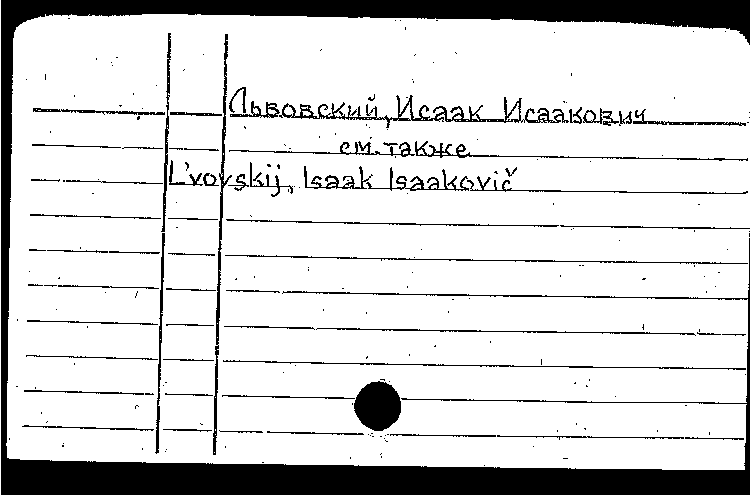 Львовский, Исаак Исаакович
см. также
L'vovskij, Isaak Isaakovič